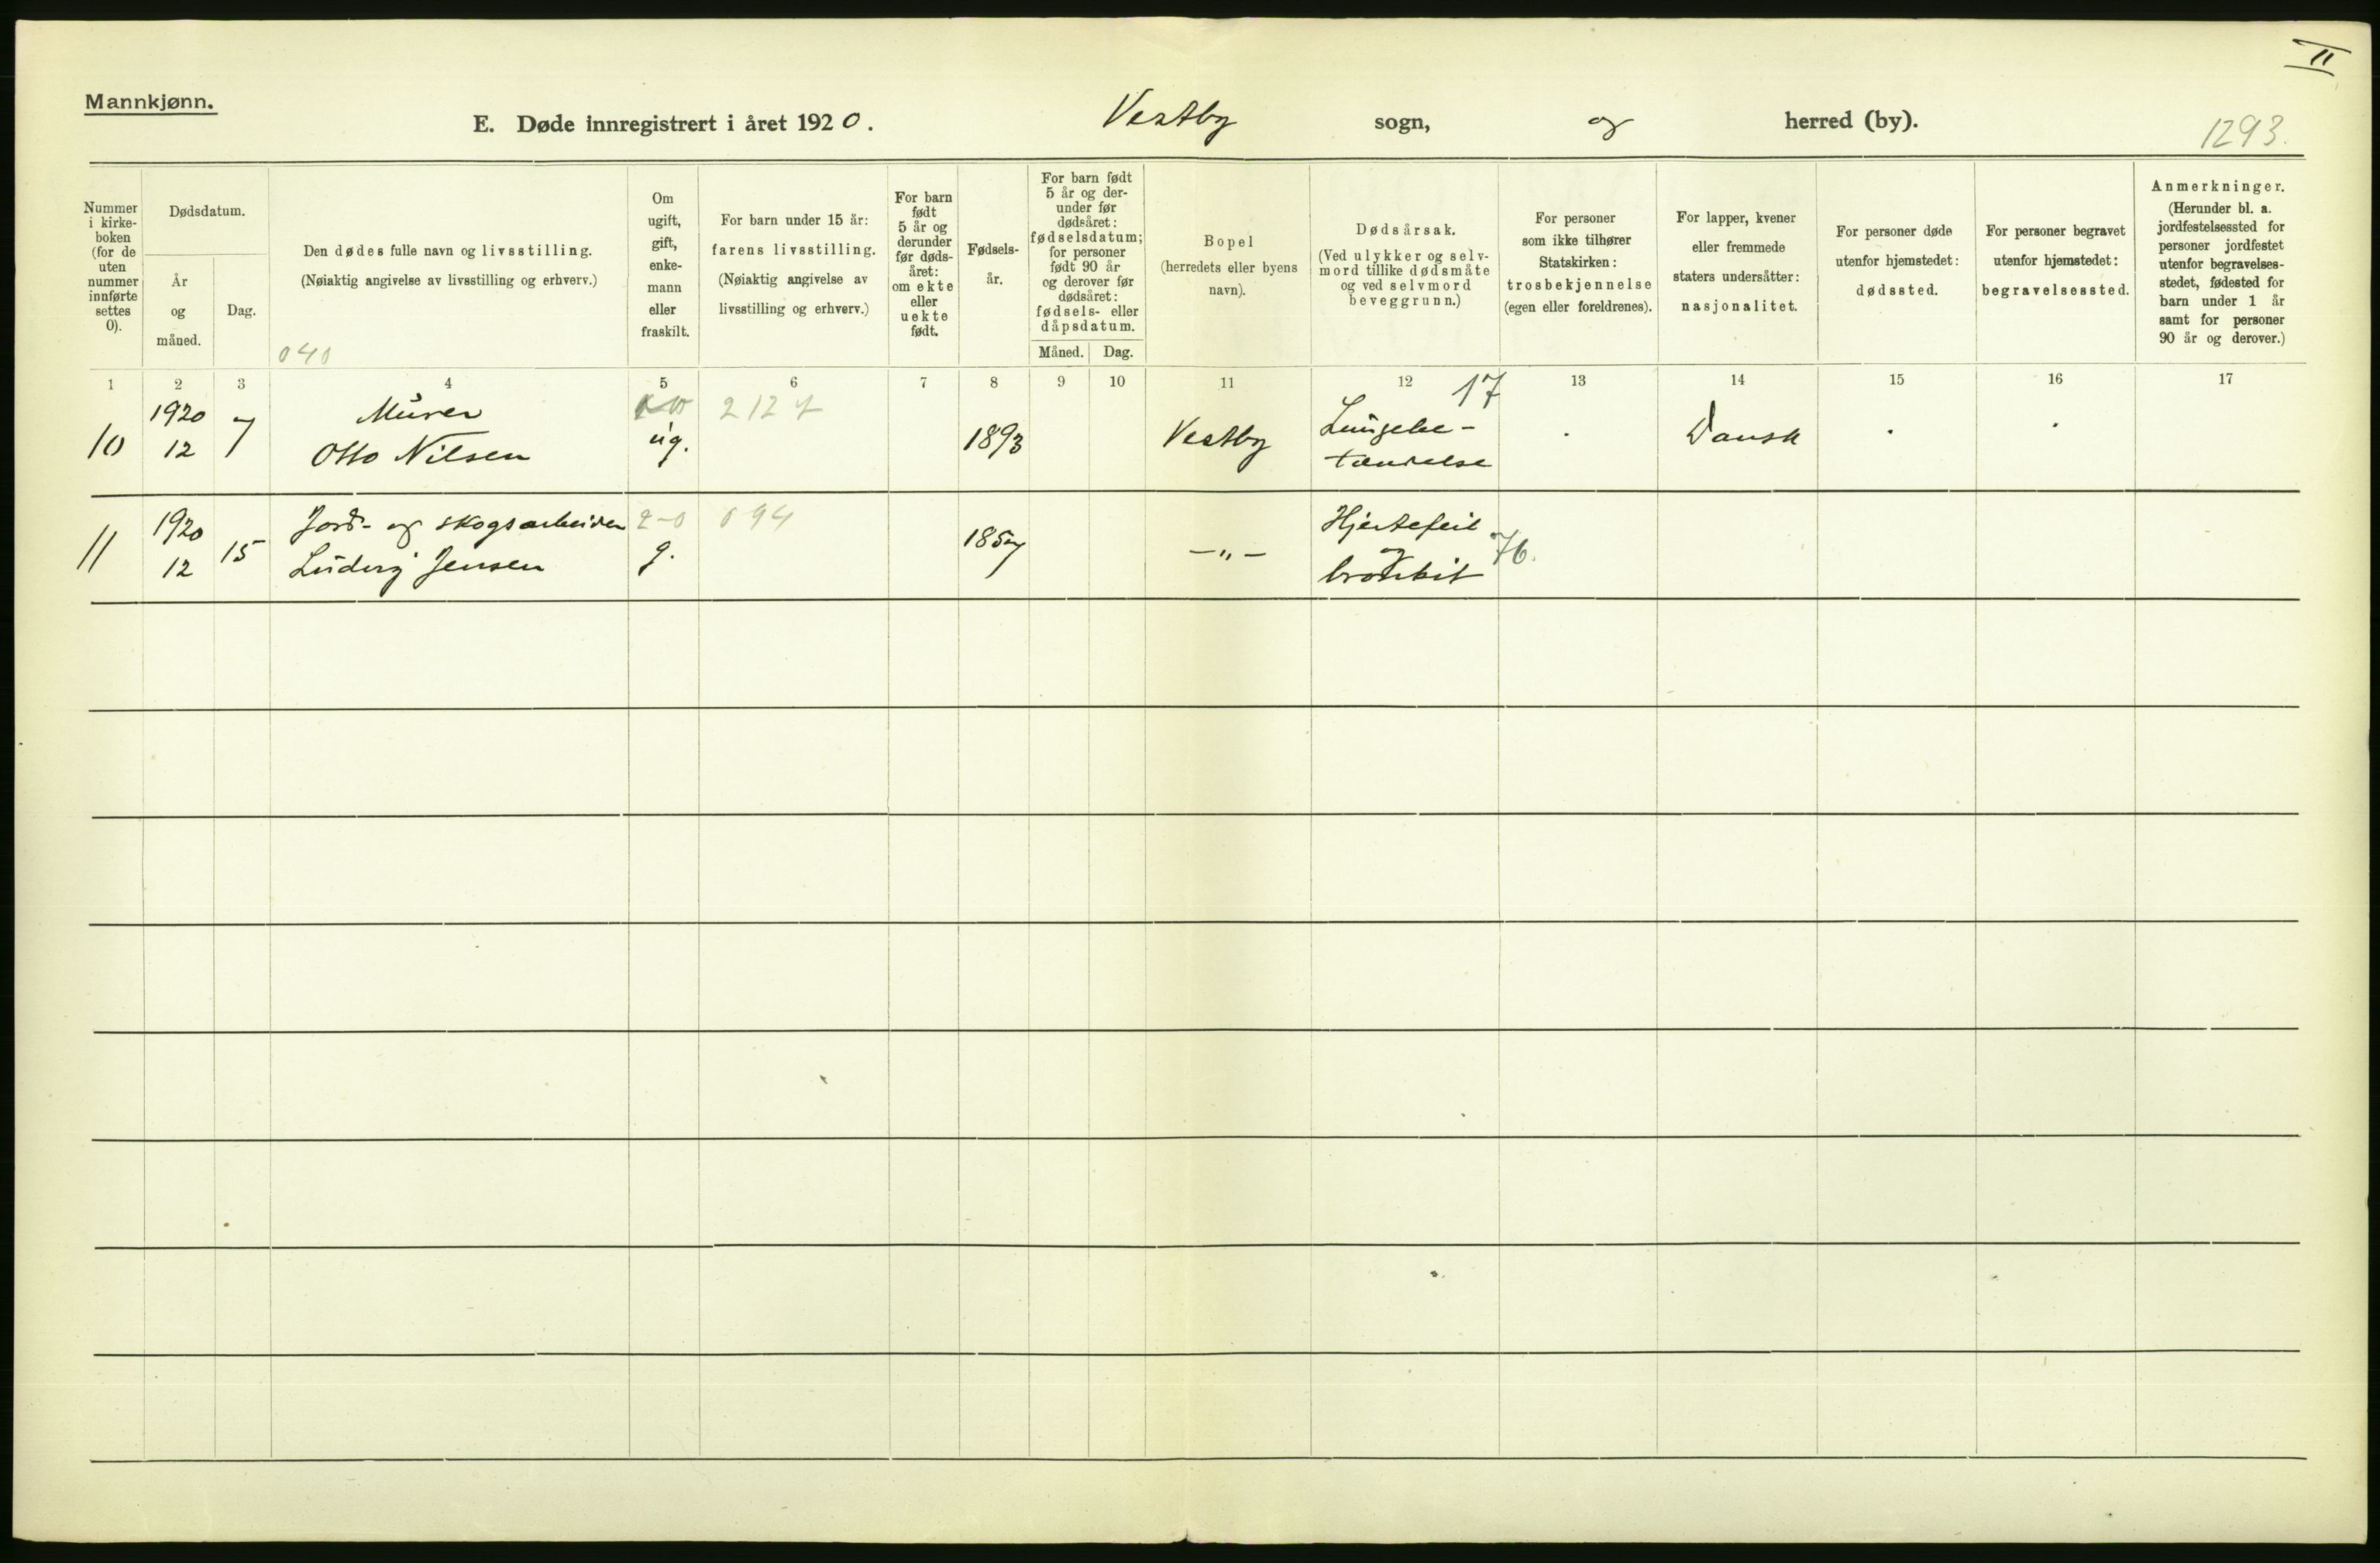 II
Mannkjønn.
E. Døde innregistrert i året 1920. Vestby sogn, og herred (by).
1293.
Nummer
i kirke-
boken
(for de
uten
nummer
innførte
settes
0).
Dødsdatum.
År
og
måned.
Dag.
Den dødes fulle navn og livsstilling.
(Nøiaktig angivelse av livsstilling og erhverv.)
040
Om
ugift,
gift,
enke-
mann
eller
fraskilt.
For barn under 15 år:
farens livsstilling.
(Nøiaktig angivelse av
livsstilling og erhverv.)
For barn
født
5 år og
derunder
før døds-
året:
om ekte
eller
uekte
født.
Fødsels-
år.
For barn født
5 år og der-
under før
dødsåret:
fødselsdatum;
for personer
født 90 år
og derover før
dødsåret:
fødsels- eller
dåpsdatum.
Måned. Dag.
Bopel
(herredets eller byens
navn).
Dødsårsak.
(Ved ulykker og selv-
mord tillike dødsmåte
og ved selvmord
beveggrunn.)
For personer
som ikke tilhører
Statskirken:
trosbekjennelse
(egen eller foreldrenes).
For lapper, kvener
eller fremmede
staters undersåtter:
nasjonalitet.
For personer døde
utenfor hjemstedet:
dødssted.
For personer begravet
utenfor hjemstedet:
begravelsessted.
Anmerkninger.
(Herunder bl. a.
jordfestelsessted for
personer jordfestet
utenfor begravelses-
stedet, fødested for
barn under 1 år
samt for personer
90 år og derover.)
1 2 3 4 5 6 7 8 9 10 11 12 13 14 15 16 17
10
1920
12
7
Murer
Otto Nilsen
ug.
2127
1893
Vestby
17
Lungebe-
tændelse
Dansk
11
1920
12
15
Jord- og skogsarbeider
Ludvig Jensen
2-0
g.
094
1857
-"-
Hjertefeil
og
bronkit
76.